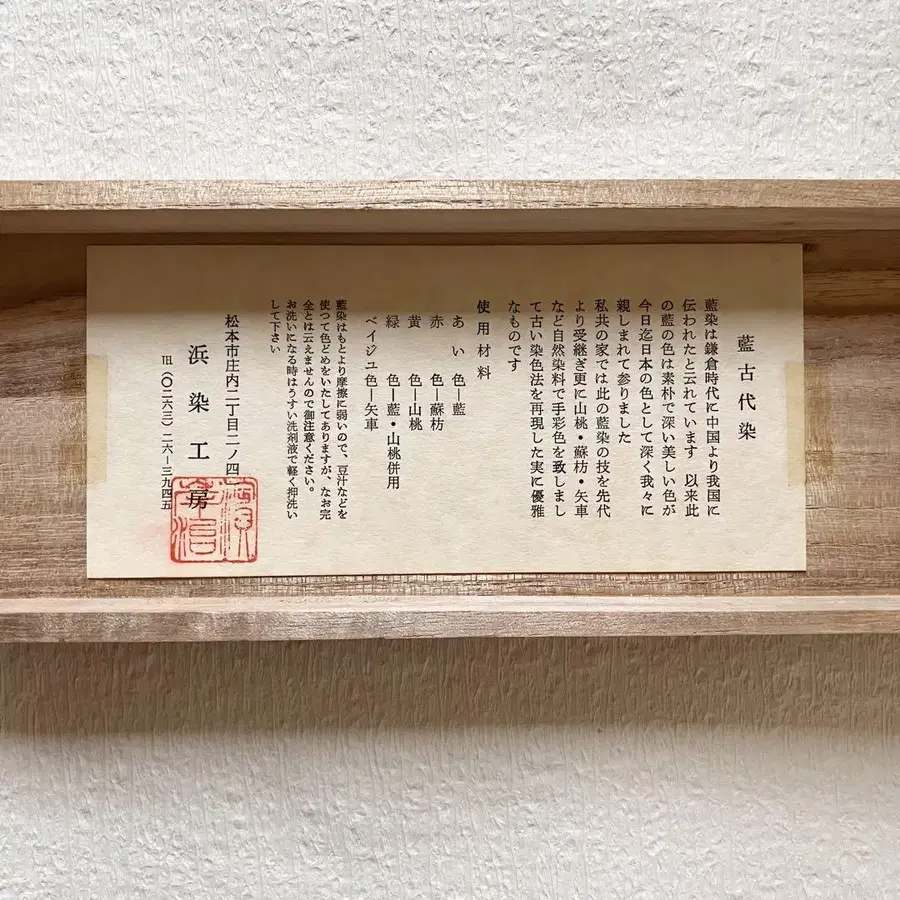 藍古代染
藍染は鎌倉時代に中国より我国に
伝われたと云れています 以来此
の藍の色は素朴で深い美しい色が
今日迄日本の色として深く我々に
親しまれて参りました
私共の家では此の藍染の技を先代
より受継ぎ更に山桃・蘇枋・矢車
など自然染料で手彩色を致しまし
て古い染色法を再現した実に優雅
なものです
使用材料
あい色―藍
赤色―蘇枋
黄色―山桃
緑色―藍・山桃併用
ベイジユ色―矢車
藍染はもとより摩擦に弱いので、豆汁などを
使つて色どめをいたしてありますが、なお完
全とは云えませんので御注意ください。
お洗いになる時はうすい洗剤液で軽く押洗い
して下さい
松本市庄内二丁目二ノ四
浜染工房
TEL (〇二六三) 二六―三九四五